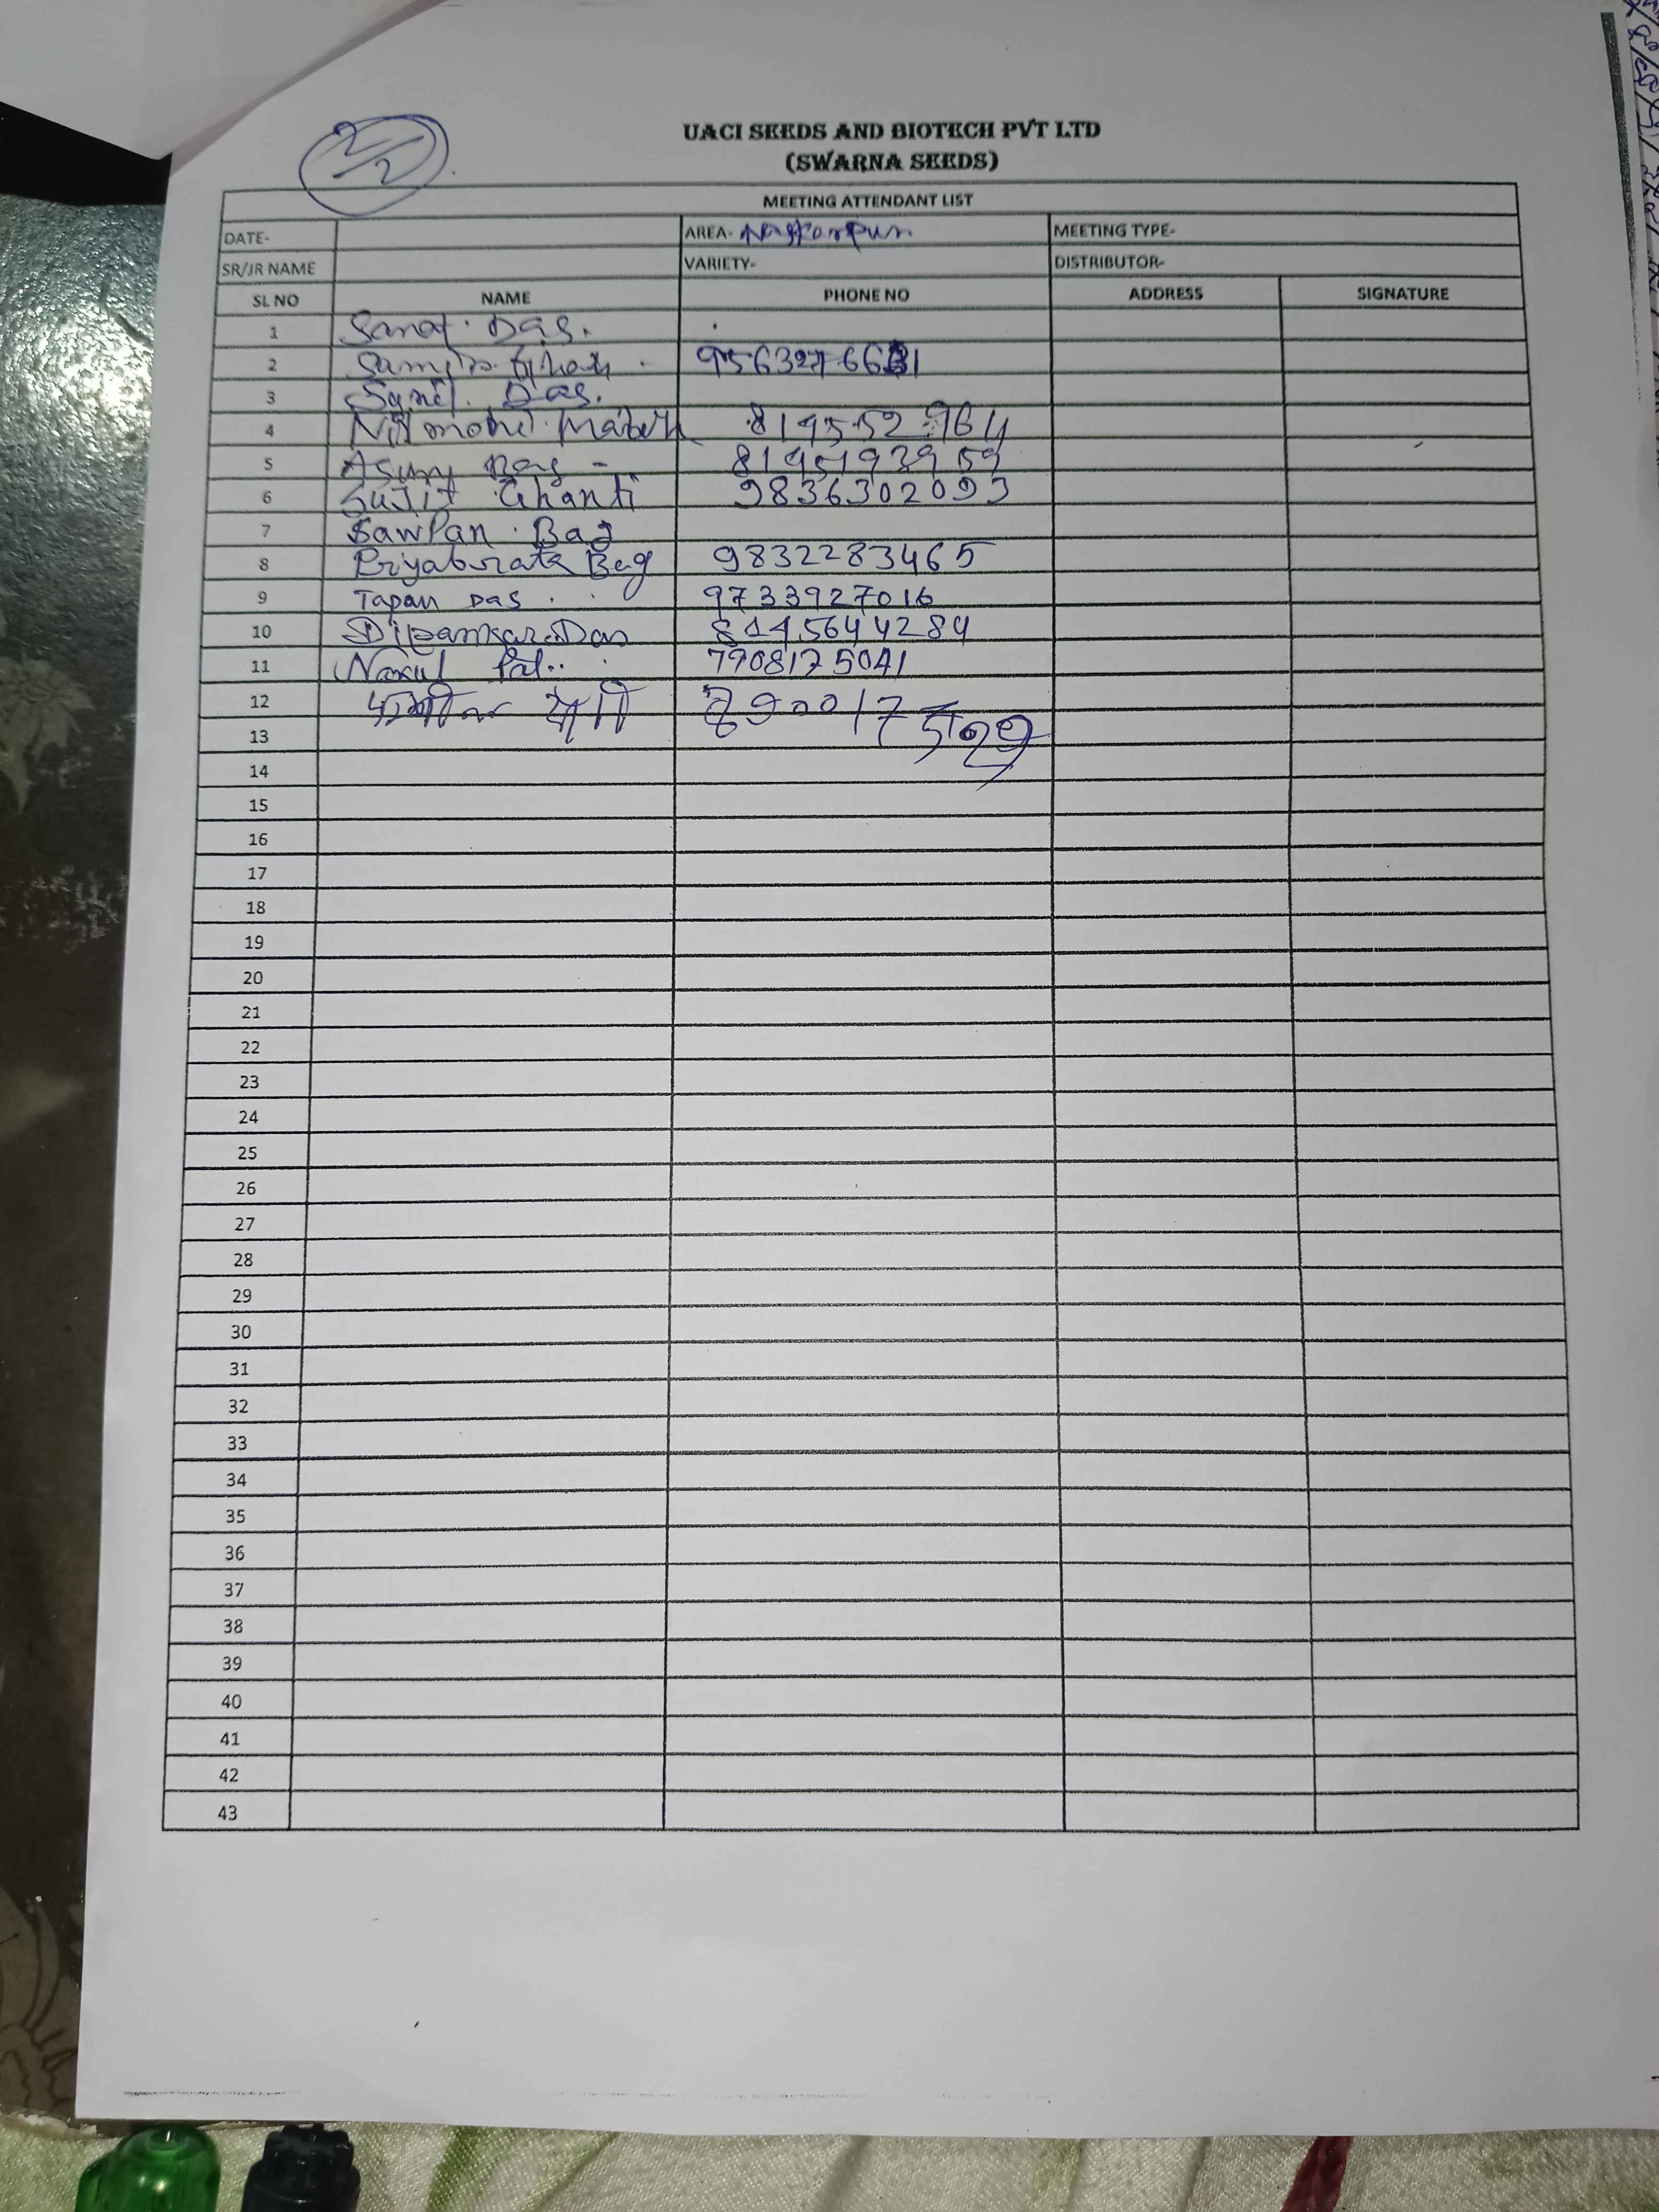 2/2
UACI SEEDS AND BIOTECH PVT LTD
(SWARNA SEEDS)
MEETING ATTENDANT LIST
DATE- AREA- MEETING TYPE-
SR/JR NAME VARIETY- DISTRIBUTOR-
SL NO NAME PHONE NO ADDRESS SIGNATURE
1 Sanat Das.
2
3 Das.
4 Nilmohel
5 8145193959
6 Sujit Ghanti 9836302093
7 Sawpan Bag
8 Priyabrata Bag 9832283465
9 Tapan Das 9733927016
10 Dipankar Das 8145644284
11 Nakul Pal 7908175041
12
13
14
15
16
17
18
19
20
21
22
23
24
25
26
27
28
29
30
31
32
33
34
35
36
37
38
39
40
41
42
43